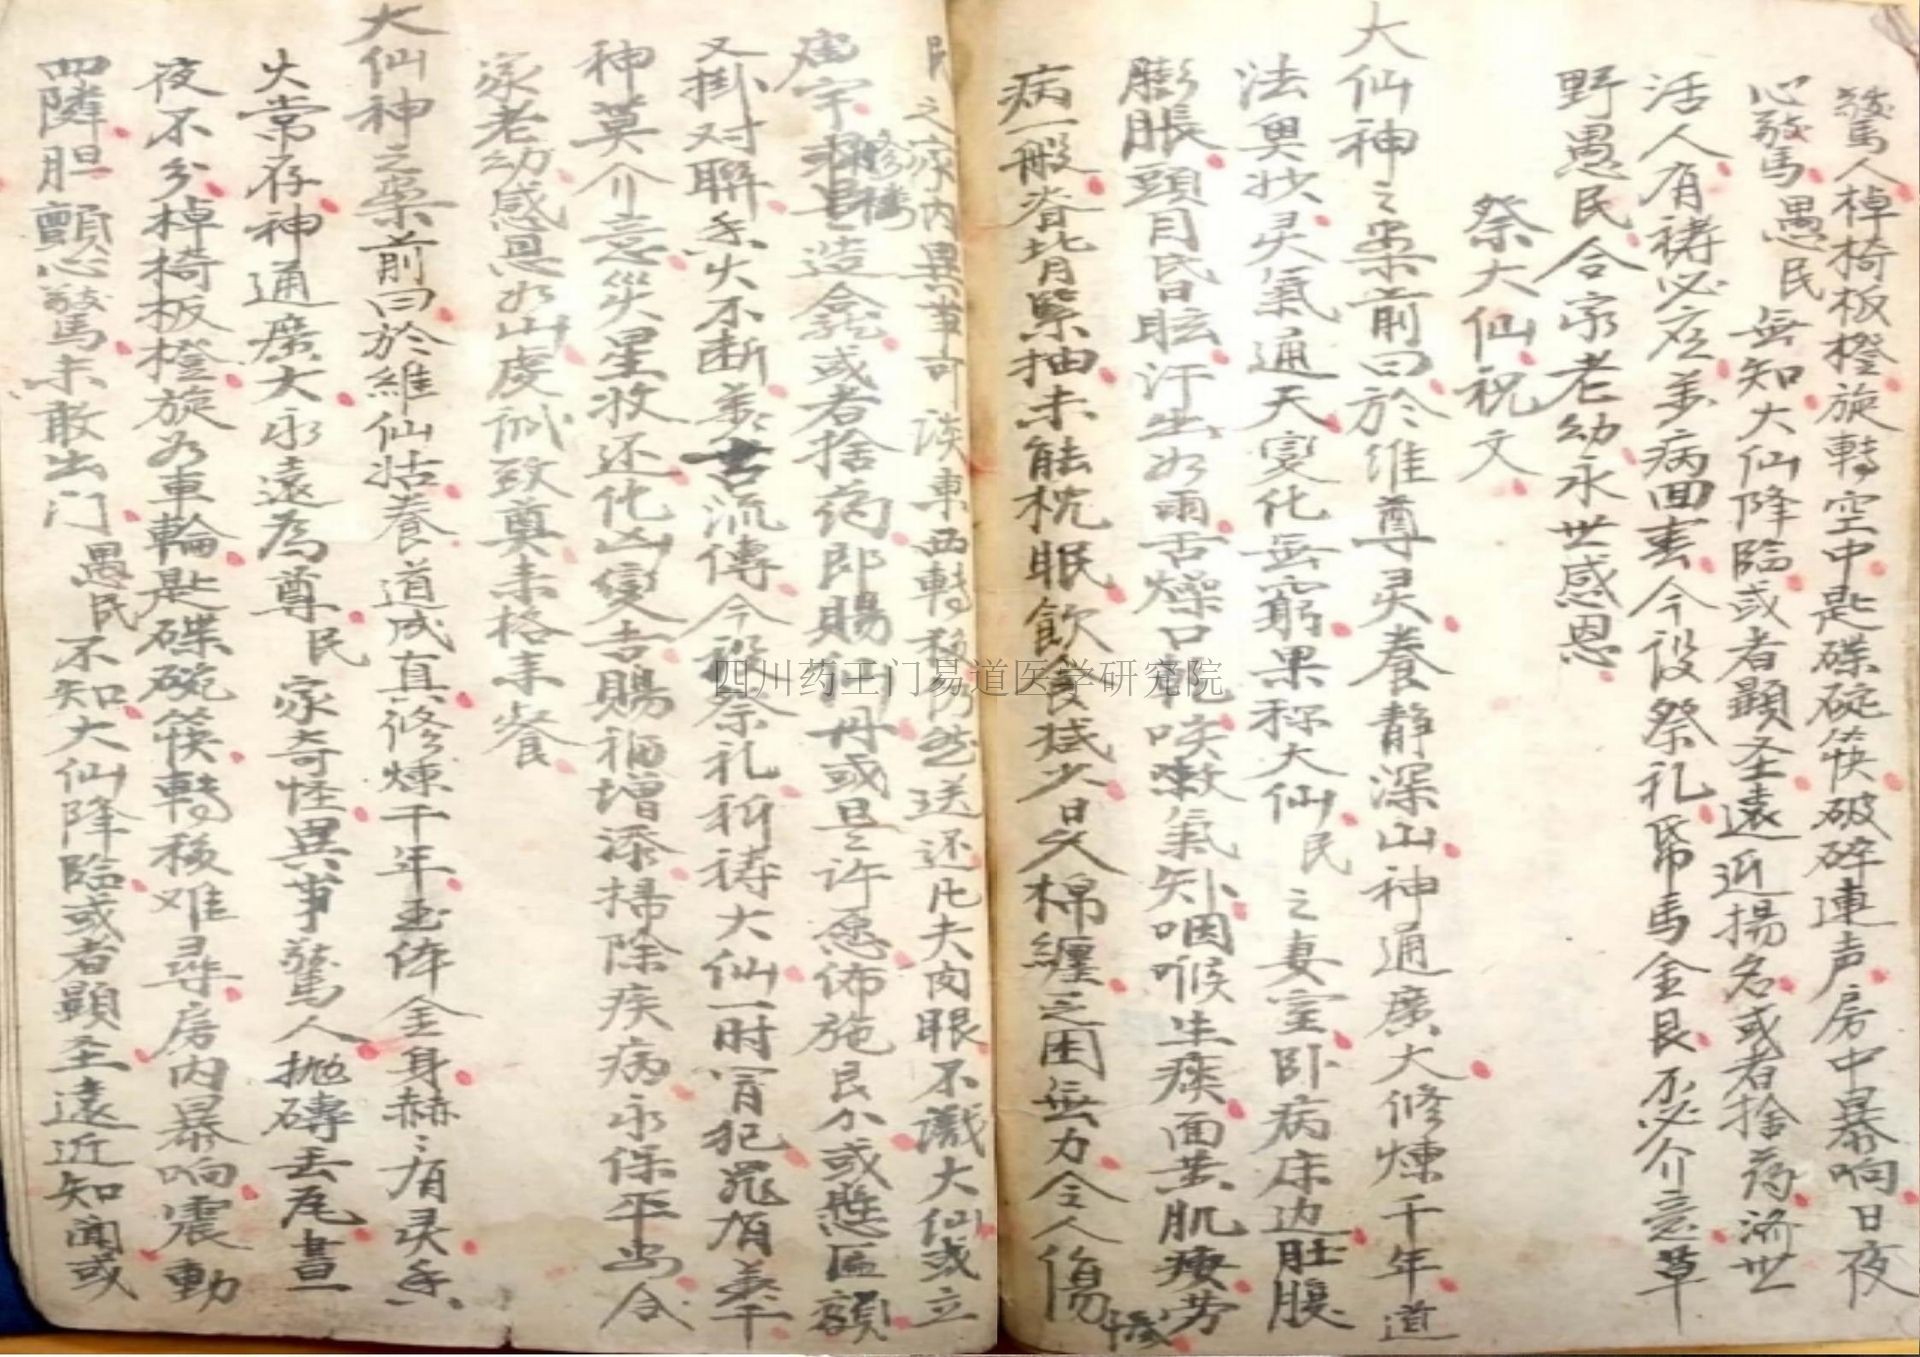 驚人棹椅板櫈旋轉空中匙碟碗筷破碎連声房中暴响日夜
心驚愚民無知大仙降臨或者顯圣遠近揚名或者捨药济世
活人有祷必应羊病回春今设祭礼帋馬金艮不必介意草
野愚民合家老幼永世感恩
祭大仙祝文
大仙神之案前曰於维尊灵養静深山神通廣大修煉千年道
法奥妙灵氣通天变化無窮果称大仙民之妻室卧病床边肚腹
膨胀頭目昏眩汗出如雨舌燥口乾咳嗽氣短咽喉生痰面黄肌瘦劳
病一般脊背緊抽未能枕眠飲食減少日久棉纏乏困無力令人傷
惨
民之家内異事可談東西轉移仍然送还凡夫肉眼不識大仙或立
庙宇修楼造龛或者捨药即賜仙丹或是許愿佈施艮分或懸匾額
又掛对聯香火不断万古流傳今設祭礼祈祷大仙一时冒犯罪有万千
神莫介意災星妆还化凶变吉賜福增添掃除疾病永保平安合
家老幼感恩如山虔诚致奠来格来飨
大仙神之案前曰於維仙姑養道成真修煉千年玉体金身赫〻有灵香
火常存神通廣大永遠為尊民家奇怪異事驚人抛磚丢尾晝
夜不分棹椅板櫈旋如車輪匙碟碗筷轉移难尋房内暴响震動
四隣胆顫心驚未敢出门愚民不知大仙降臨或者顯圣遠近知聞或
四川药王门易道医学研究院